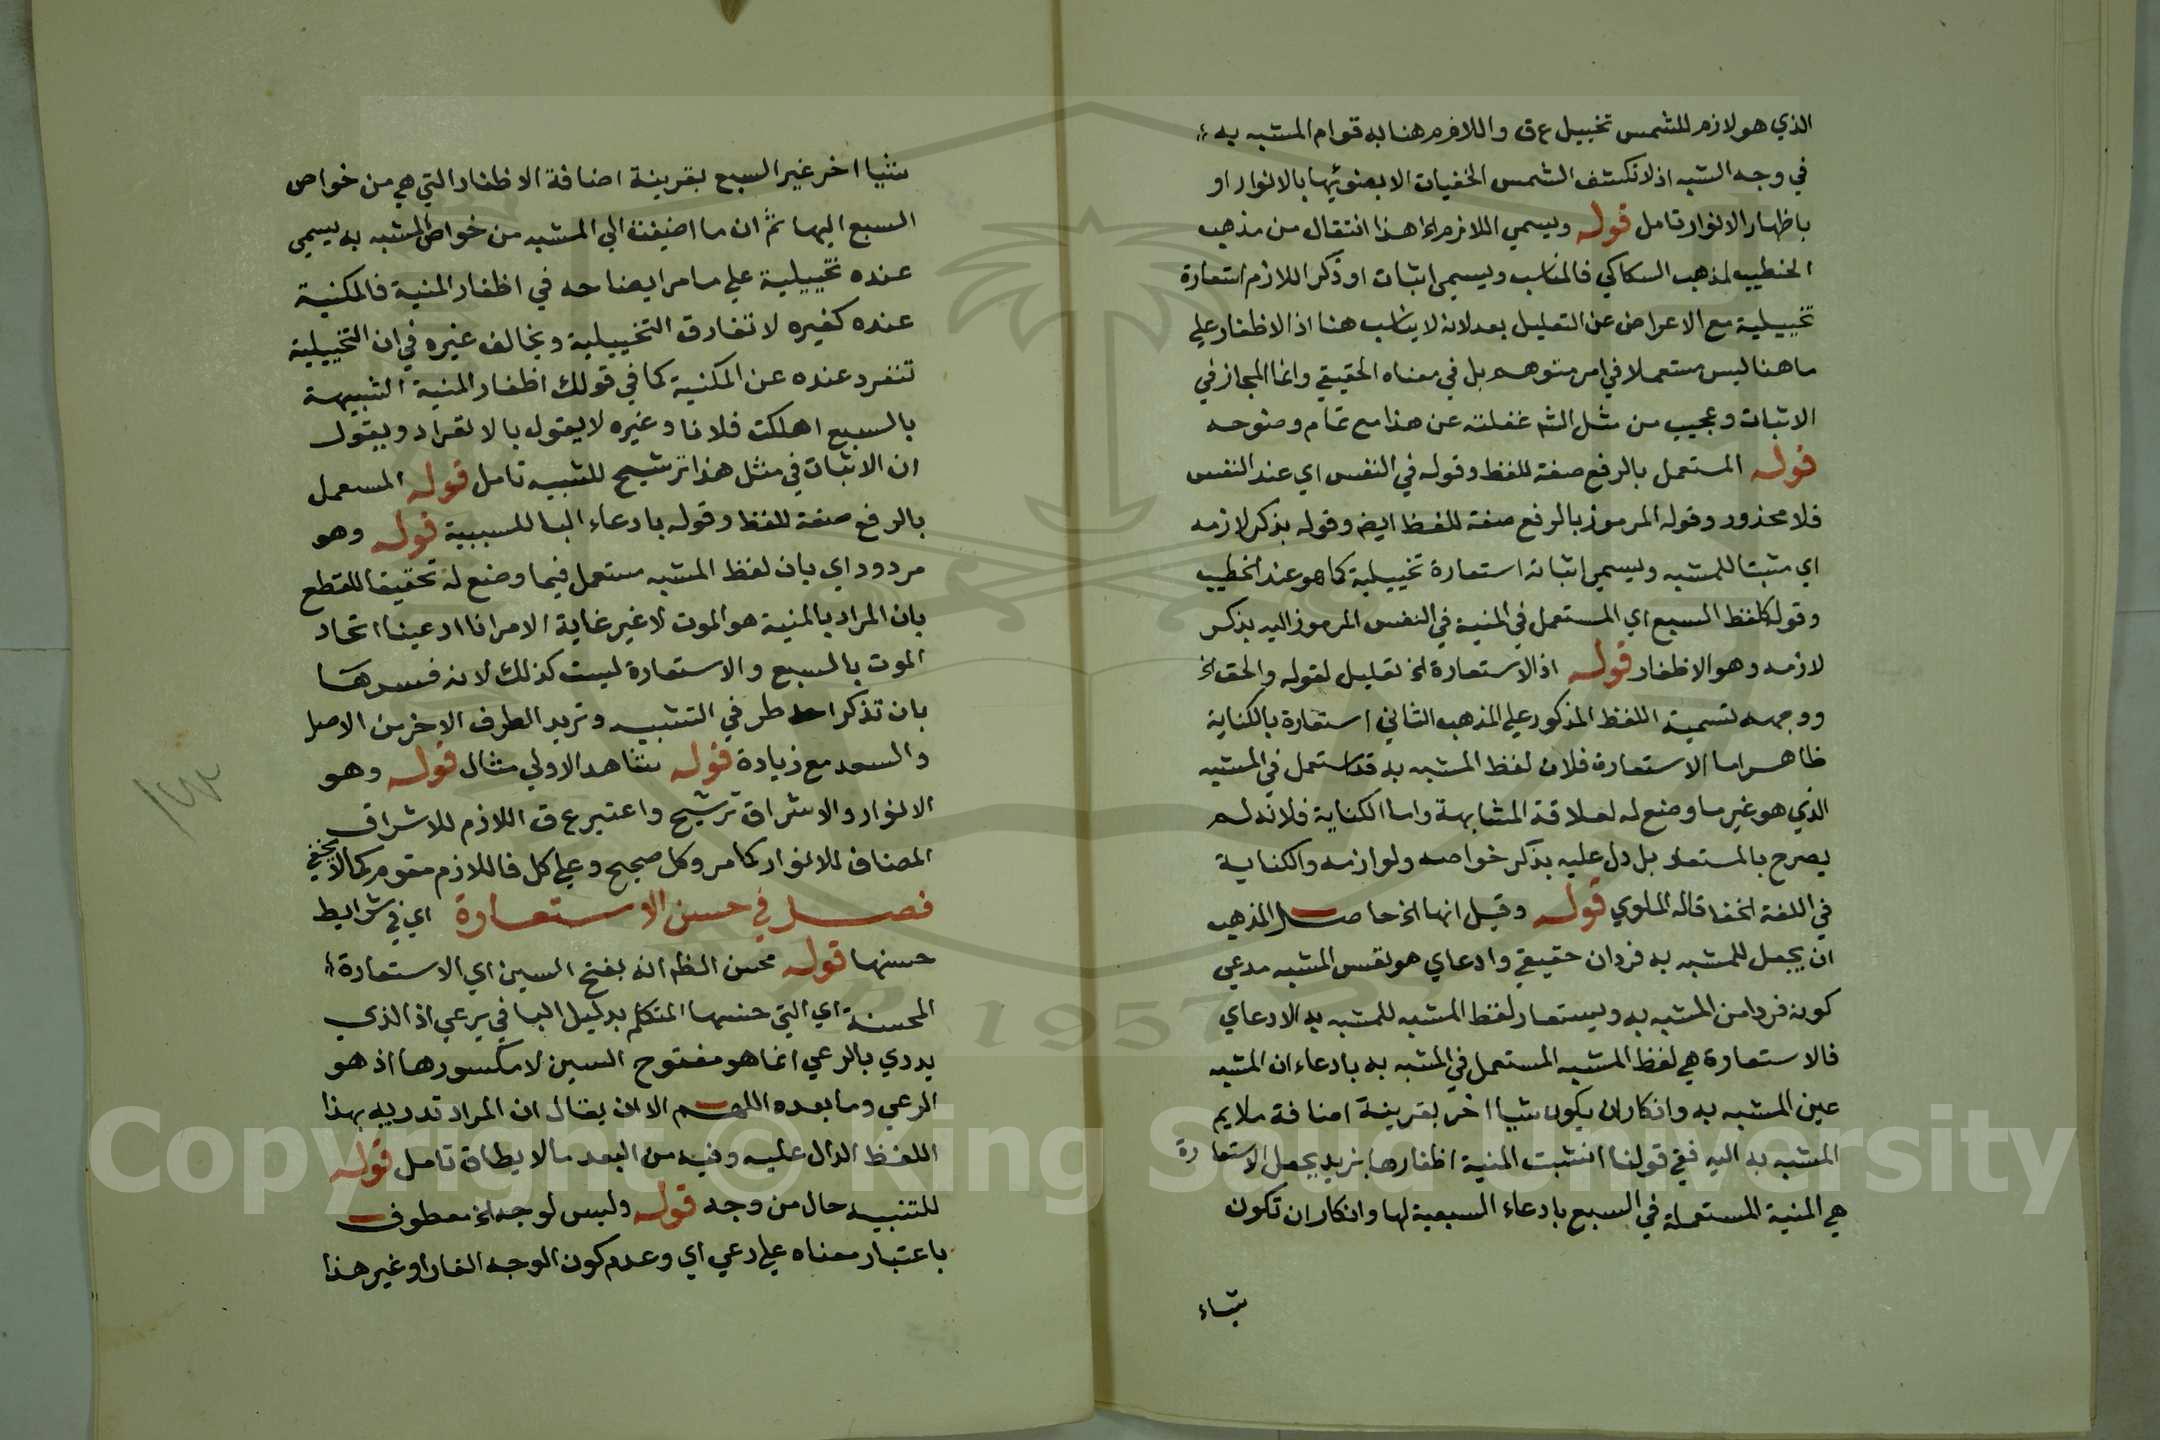 الذي هو لازم للشمس تخييل ع ق واللازم هنا به قوام المشبه به
في وجه الشبه اذ لا تكشف الشمس الخفيات الا بضوئها بالانوار او
باظهار الانوار تامل قوله ويسمي اللازم اه هذا انتقال من مذهب
الخطيب لمذهب السكاكي فالمناسب ويسمي اثبات او ذكر اللازم استعارة
تخييلية مع الاعراض عن التعليل بعد لانه لا يناسب هنا اذ الاظفار علي
ما هنا ليس مستعملا في امر متوهم بل في معناه الحقيقي وانما المجاز في
الاثبات وعجيب من مثل الشم غفلته عن هذا مع تمام وضوحه
قوله المستعمل بالرفع صفة للفظ وقوله في النفس اي عند النفس
فلا محذور وقوله المرموز بالرفع صفة للفظ ايضا وقوله بذكر لازمه
اي مثبتا للمشبه ويسمي اثباته استعارة تخييلية كما هو عند الخطيب
وقوله كلفظ السبع اي المستعمل في المنية في النفس المرموز اليه بذكر
لازمه وهو الاظفار قوله اذ الاستعارة الخ تعليل لقوله والحق الخ
ووجه تسمية اللفظ المذكور علي المذهب الثاني استعارة بالكناية
ظاهر اما الاستعارة فلان لفظ المشبه به قد استعمل في المشبه
الذي هو غير ما وضع له لعلاقة المشابهة واما الكناية فلانه لم
يصرح بالمستعار بل دل عليه بذكر خواصه ولوازمه والكناية
في اللغة الخفا قاله الملوي قوله وقيل انها الخ حاصل المذهب
ان يجعل للمشبه به فردان حقيقي وادعاي هو نفس المشبه مدعي
كونه فردا من المشبه به ويستعار لفظ المشبه للمشبه به الادعاي
فالاستعارة هي لفظ المشبه المستعمل في المشبه به بادعاء ان المشبه
عين المشبه به وانكار ان يكون شيا اخر بقرينة اضافة ملايم
المشبه به اليه ففي قولنا انشبت المنية اظفارها بزيد يجعل الاستعارة
هي المنية المستعملة في السبع بادعاء السبعية لها وانكار ان تكون
شياء
شيا اخر غير السبع بقرينة اضافة الاظفار التي هي من خواص
السبع اليها ثم ان ما اضيفت الي المشبه من خواص المشبه به يسمي
عنده تخييلية علي ما مر ايضاحه في اظفار المنية فالمكنية
عنده كغيره لا تفارق التخييلية ويخالف غيره في ان التخييلية
تنفرد عنده عن المكنية كما في قولك اظفار المنية الشبيهة
بالسبع اهلكت فلانا وغيره لا يقول بالانفراد ويقول
ان الاثبات في مثل هذا ترشيح للتشبيه تامل قوله المستعمل
بالرفع صفة للفظ وقوله بادعاء البا للسببية قوله وهو
مردود اي بان لفظ المشبه مستعمل فيما وضع له تحقيقا للقطع
بان المراد بالمنية هو الموت لا غير غاية الامر انا ادعينا اتحاد
الموت بالسبع والاستعارة ليست كذلك لانه فسرها
بان تذكر احد طرفي التشبيه وتريد الطرف الاخر من الاصل
والسعد مع زيادة قوله شاهد الاولي مثال قوله وهو
الانوار والاشراق ترشيح واعتبر ع ق اللازم للاشراق
المضاف للانوار كما مر وكل صحيح وعلي كل فاللازم مقوم كما لا يخفي
فصل في حسن الاستعارة اي في شرايط
حسنها قوله محسن الظم انه بفتح السين اي الاستعارة
المحسنة اي التي حسنها المتكلم بدليل البا في برعي اذ الذي
يدري بالرعي انما هو مفتوح السين لا مكسورها اذ هو
الرعي وما بعده اللهم الا ان يقال ان المراد تدريه بهذا
اللفظ الدال عليه وفيه من البعد ما لا يطاق تامل قوله
للتنبيه حال من وجه قوله وليس لوجه الخ معطوف
باعتبار معناه علي رعي اي وعدم كون الوجه الغازا وغير هذا
١٧٣